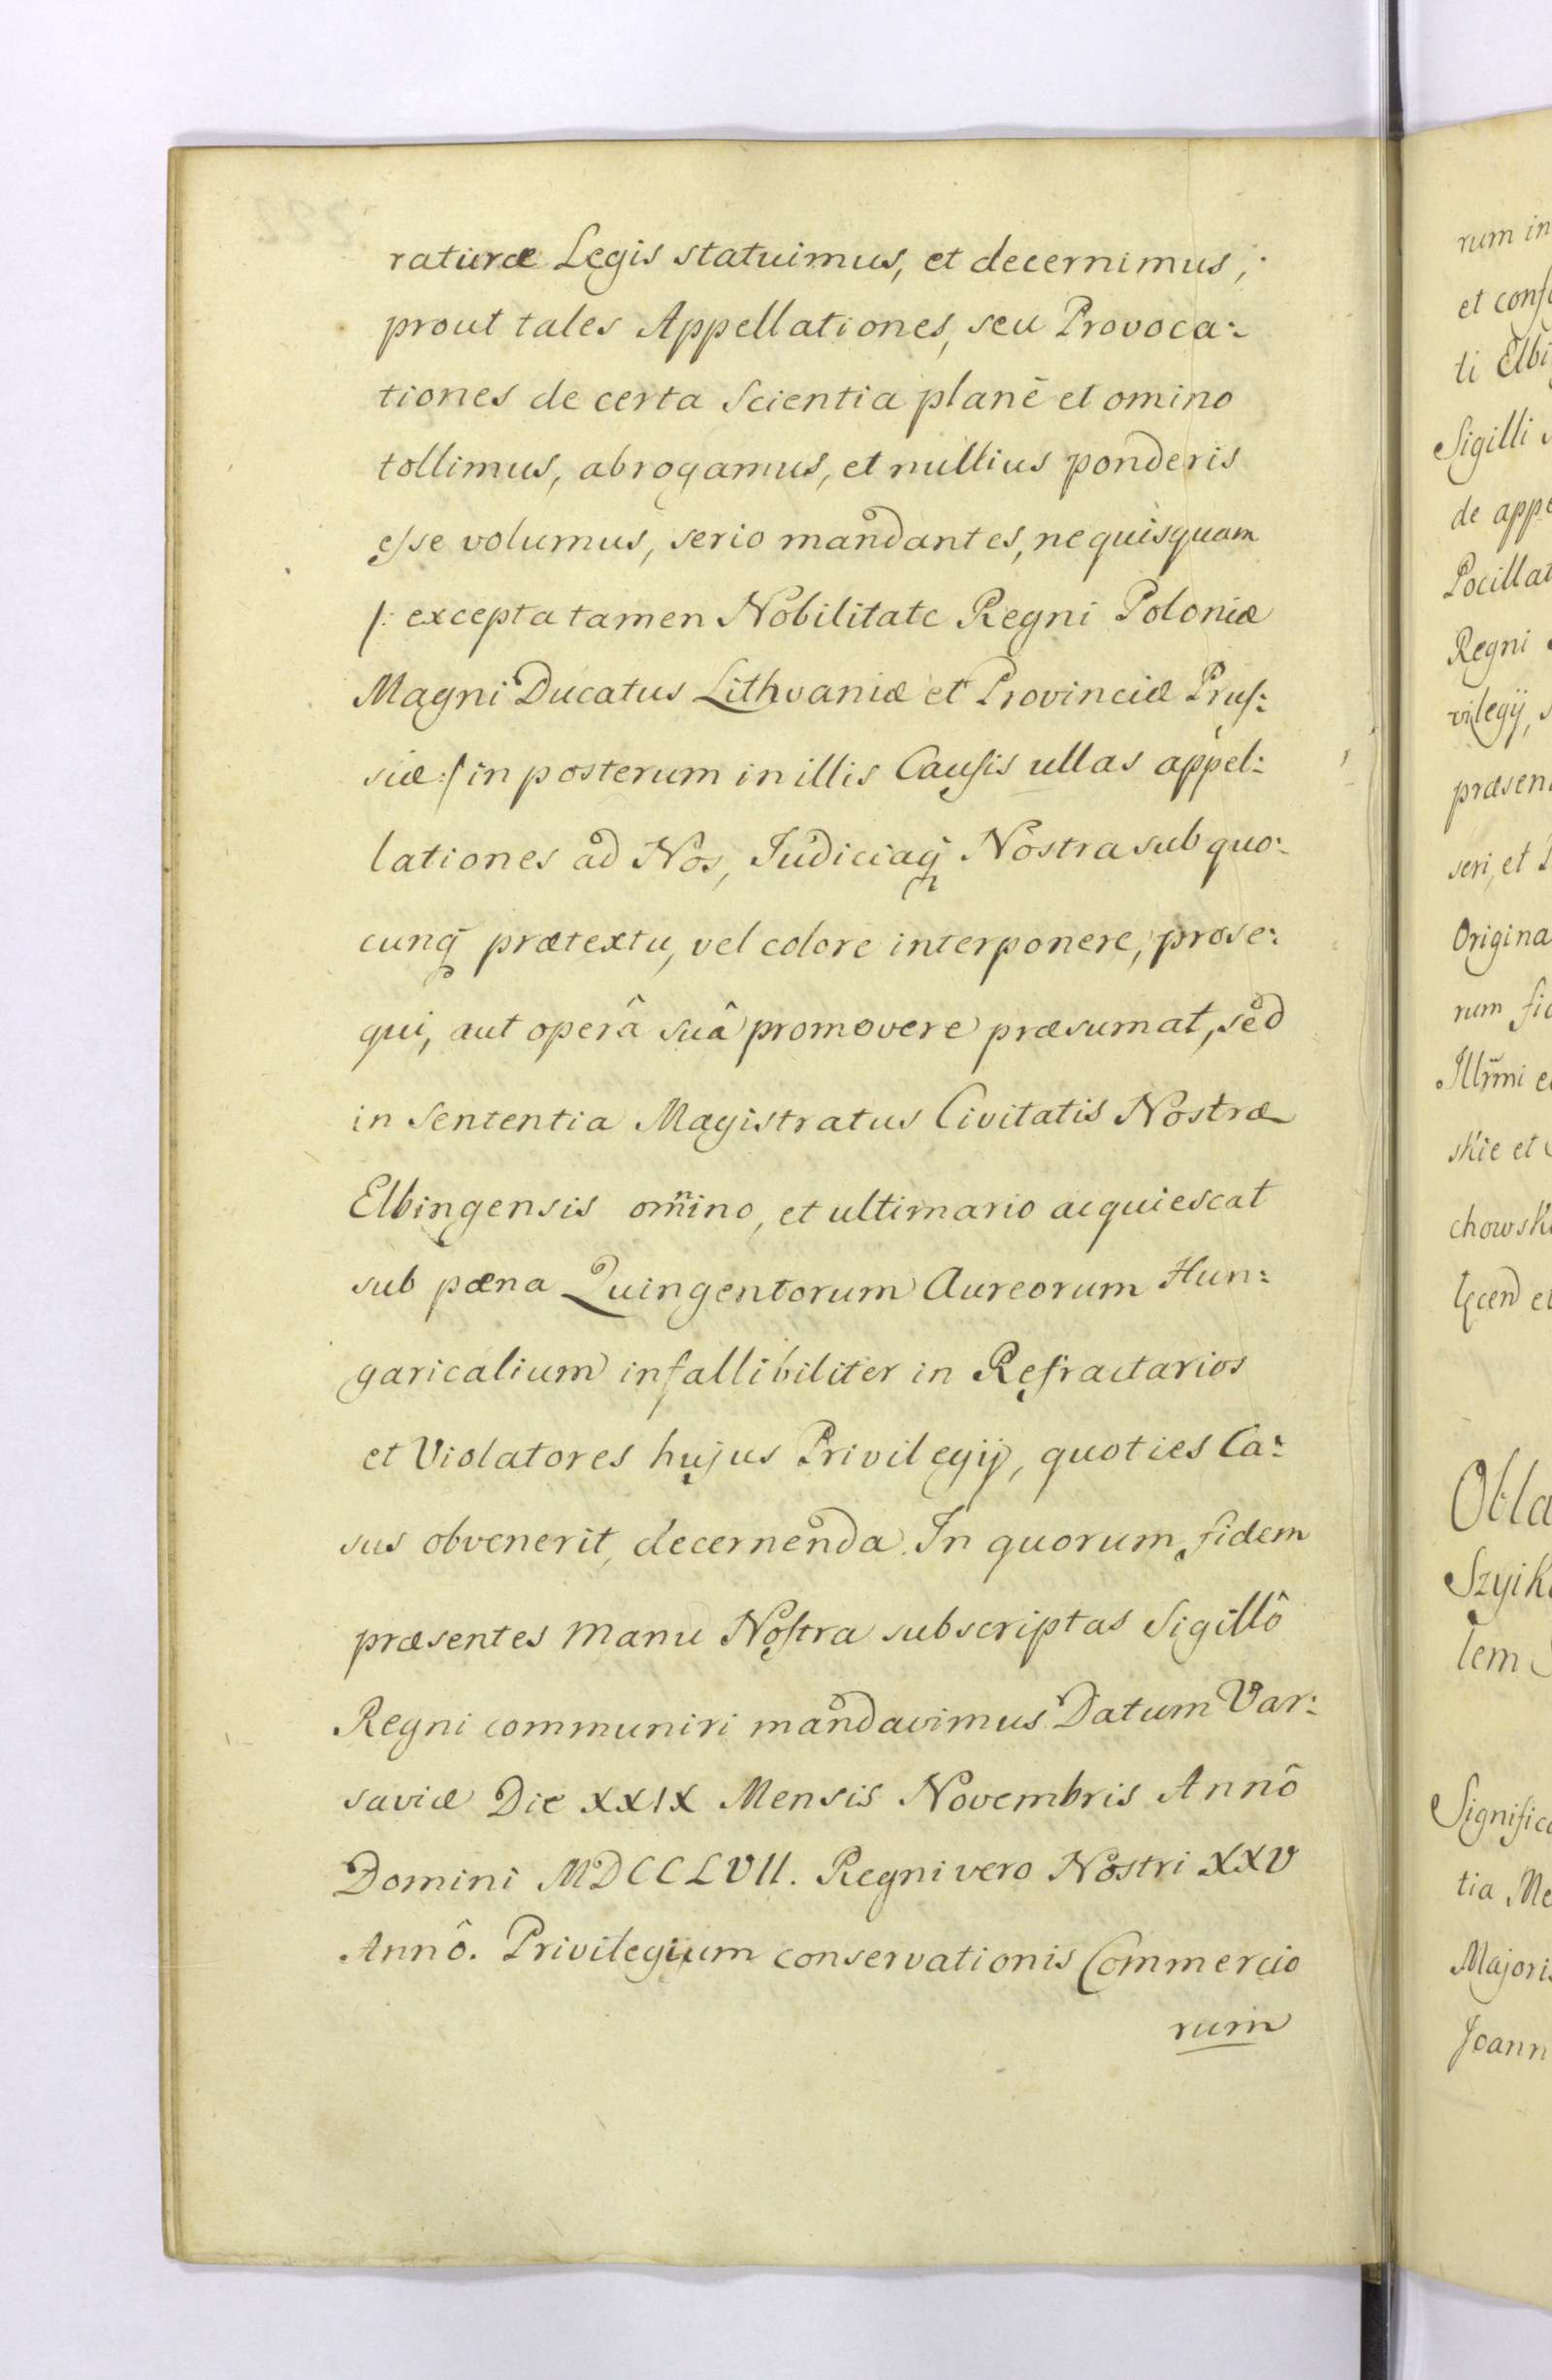 raturæ Legis statuimus, et decernimus;
prout tales Appellationes, seu Provoca:
tiones de certa Scientia planè et omino
tollimus, abrogamus, et nullius ponderis
eſse volumus, serio mandantes, ne quisquam
/: excepta tamen Nobilitate Regni Poloniæ
Magni Ducatus Lithvaniæ et Provinciæ Pruſ:
siæ :/ in posterum in illis Cauſis ullas appel:
lationes ad Nos, Judiciaq̃ Nostra sub quo:
cunq̃ prætextu, vel colore interponere, prose:
qui, aut operâ suâ promovere præsumat, sed
in Sententia Magistratus Civitatis Nostræ
Elbingensis om̃nino, et ultimario acquiescat
sub pœna Quingentorum Aureorum Hun:
garicalium infallibiliter in Refractarios
et Violatores hujus Privilegij, quoties Ca:
sus obvenerit, decernenda. In quorum fidem
præsentes Manu Noſtra subscriptas Sigillô
Regni communiri mandavimus. Datum Var:
saviæ Die XXIX Mensis Novembris Annô
Domini MDCCLVII. Regni vero Nostri XXV
Annô. Privilegium conservationis Commercio
rum
rum in
et conf
ti Elbi
Sigilli
de appe
Pocillat
Regni
vilegij,
præsen
seri, et
Origina
rum fid
Illr̃mi e
skie et
chowsk
et
Obla
Szyik
tem
Signific
tia Me
Majoris
Joann